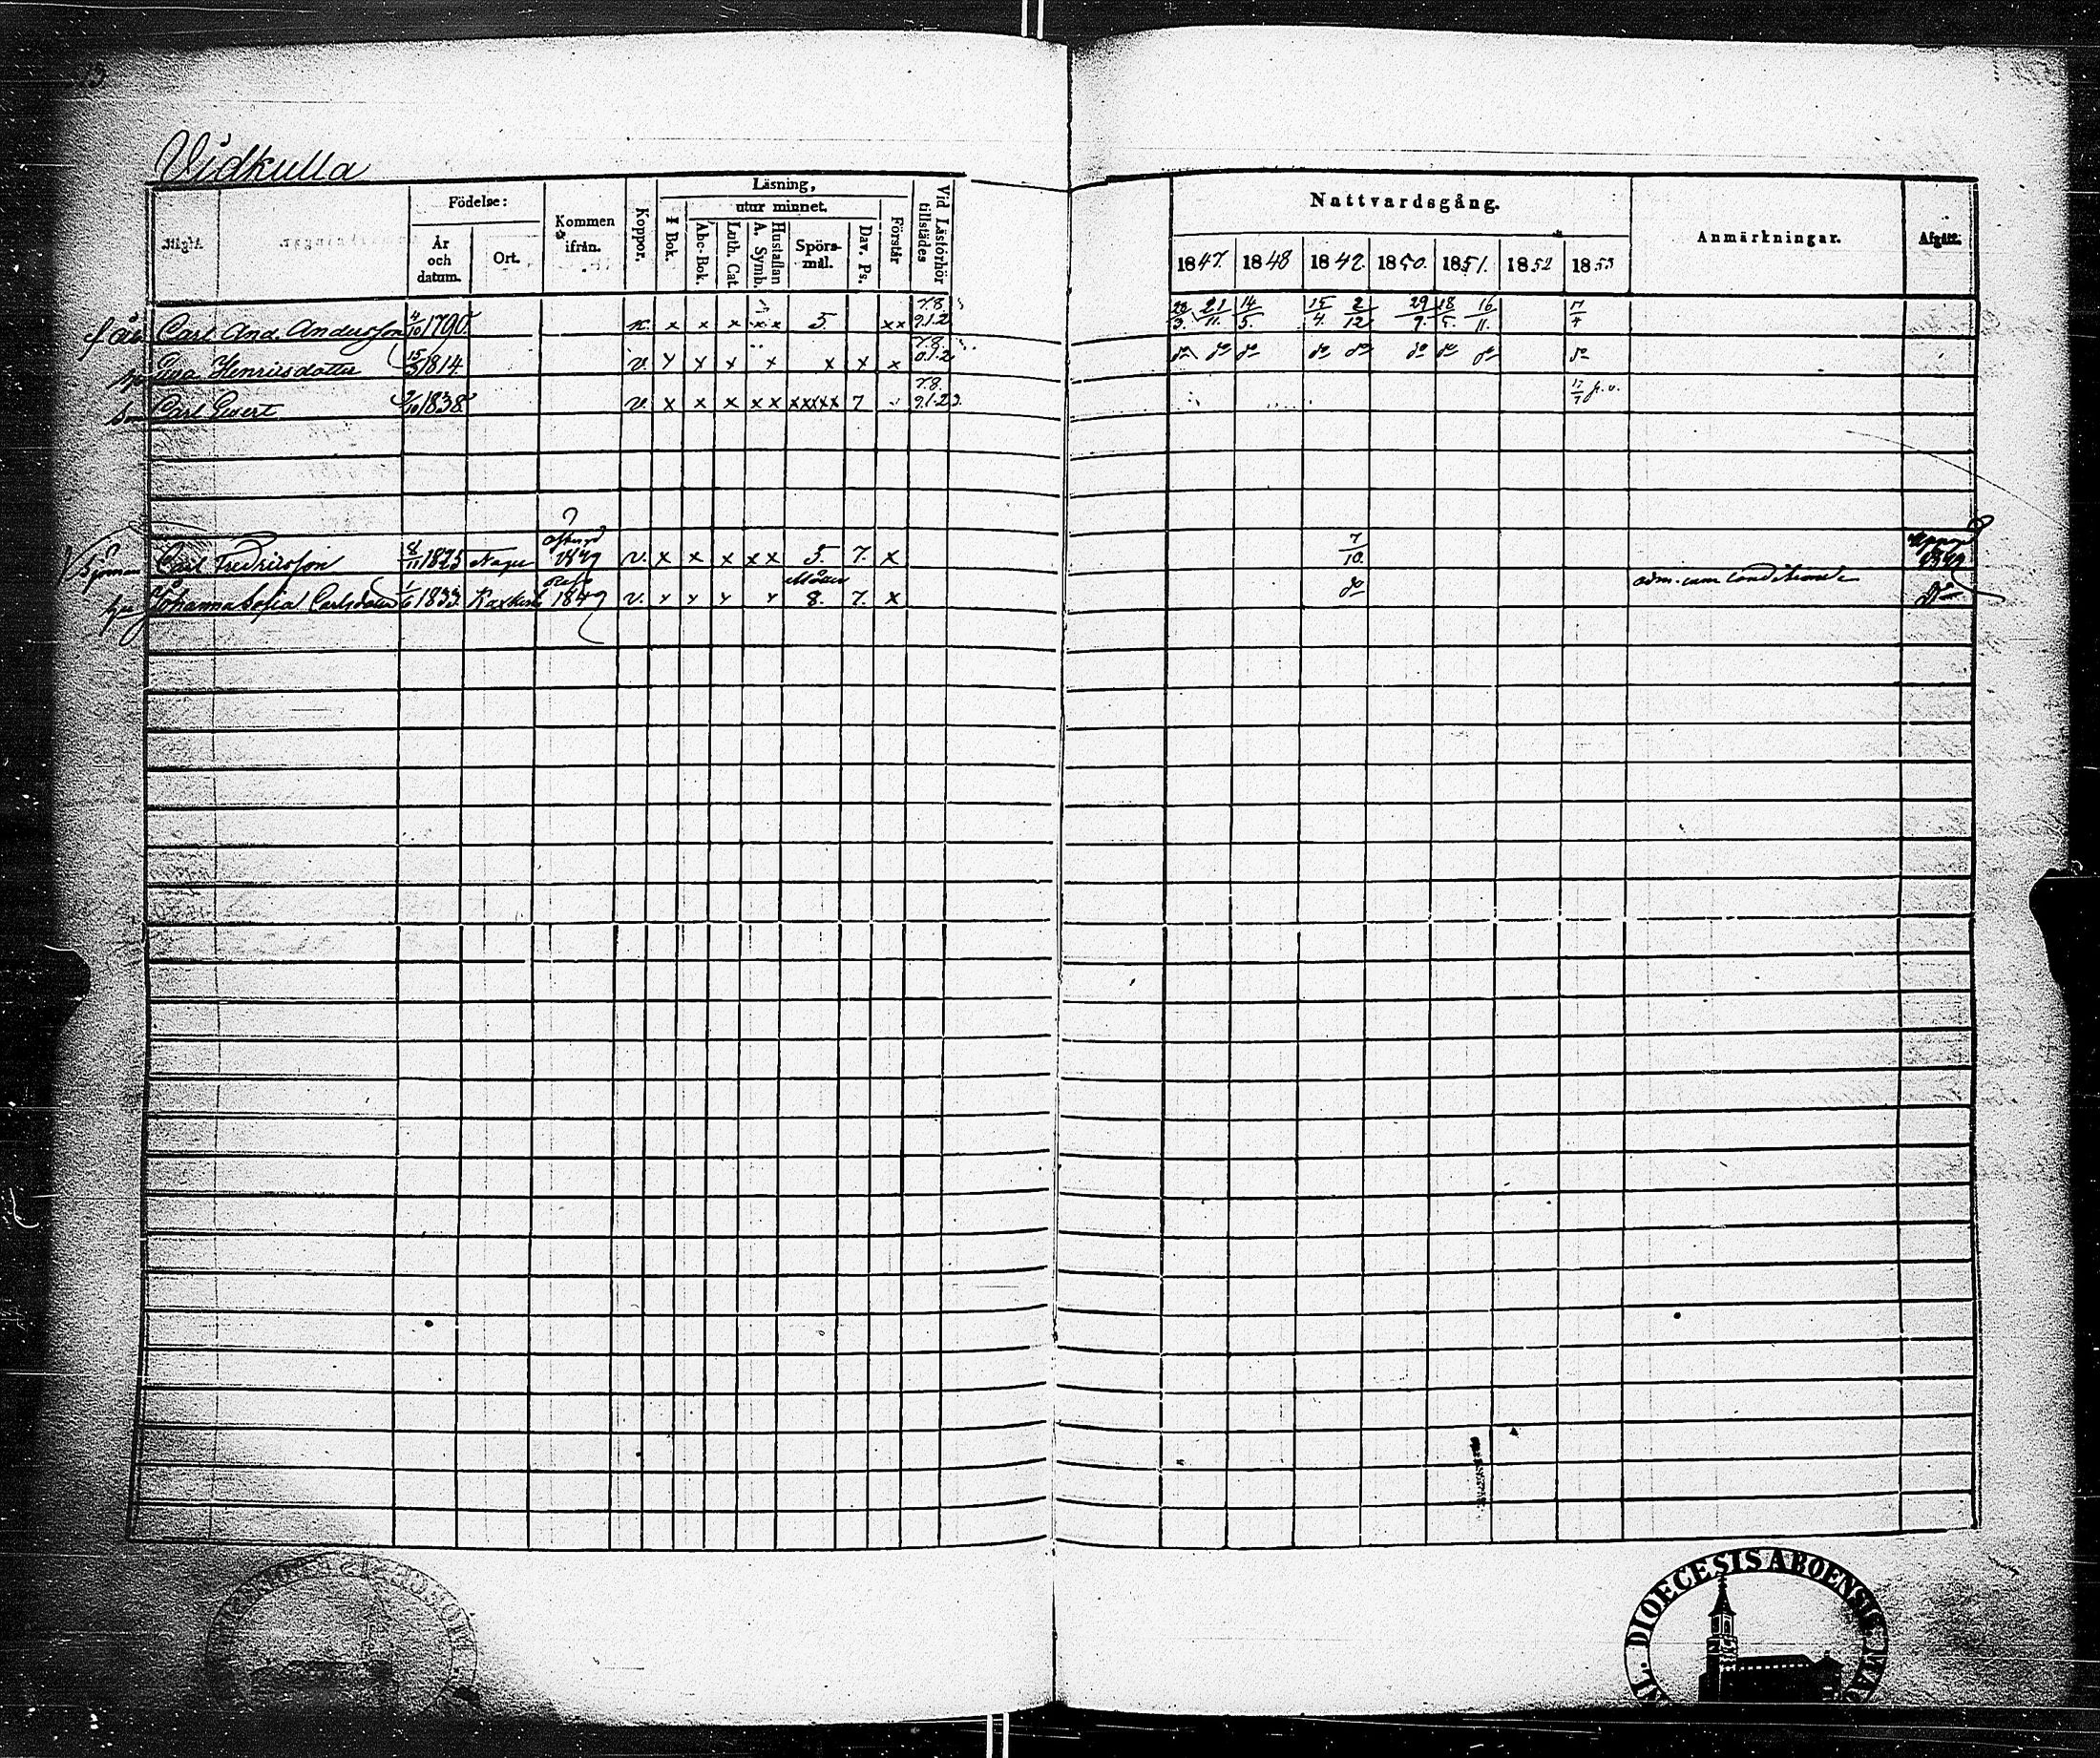 Vidkulla
Födelse: Kommen ifrån. Koppor. Läsning, utur minnet. Vid Läsförhör tillstädes
År och datum. Ort. I Bok. Abc-Bok. Luth. Cat. Hustaflan A. Symb. Spörs-mål. Dav. Ps. Förstår
Nattvardsgång. Anmärkningar. Afgått.
1847. 1848 1849. 1850. 1851. 1852 1853
Carl And. Andersson 4/10 1790. x x x x x 5. x x 7.8. 9.1.2 21/11. 14/5. 15/4. 2/12 29/9. 18/5. 16/11. 17/4
Henriksdotter 15/3 1814. v. x x x x x x x 7.8. 0.1.2 do do do do do do do do do
Carl Gevert 2/10 1838. v. x x x x x x x x x x 7 7.8. 9.1.2 3. 17/7
Carl Fredriksson 8/11 1825 Nagu 1849 v. x x x x x 5. 7. x 7/10. 1849
Johanna Sofia Carlsdotter 1/6 1833. 1849 v. x x x x 8. 7. x do adm. cum conditione do
DIOECESIS ABOENSIS